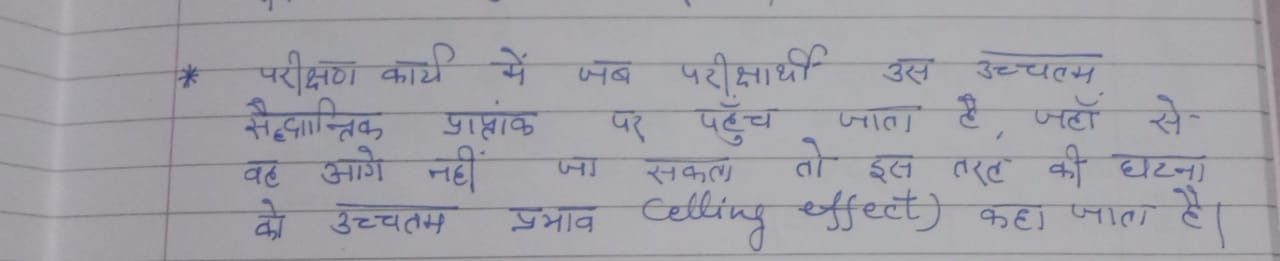 * परीक्षण कार्य में जब परीक्षार्थी उस उच्चतम
सैद्धान्तिक प्राप्तांक पर पहुँच जाता है, जहाँ से
वह आगे नहीं जा सकता तो इस तरह की घटना
को उच्चतम प्रभाव Celling effect) कहा जाता है।